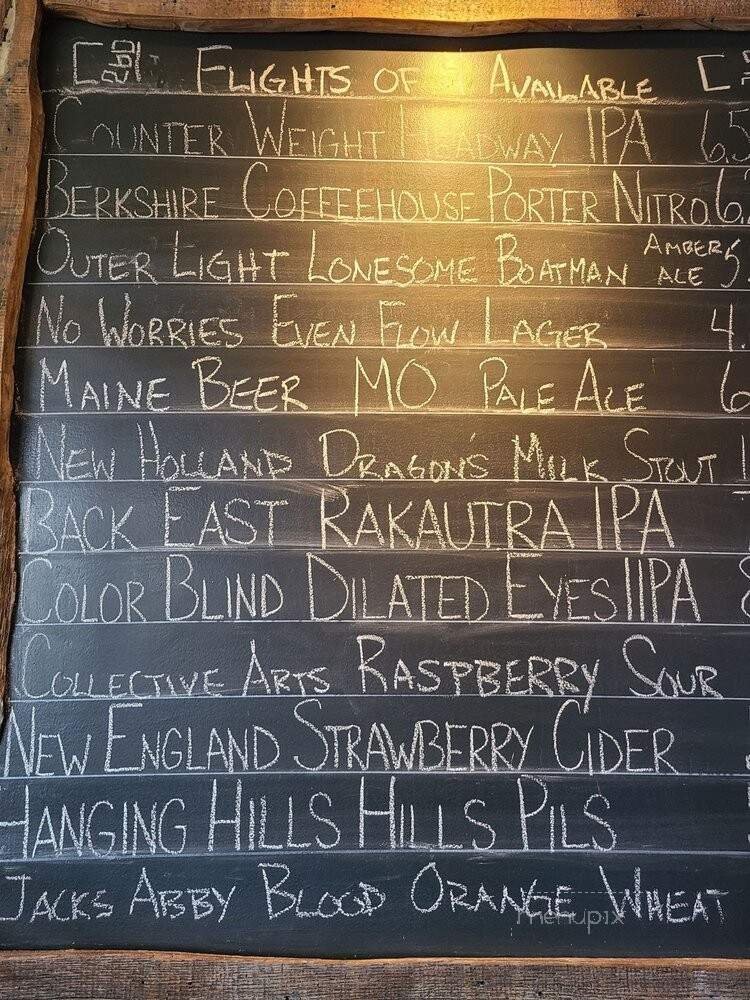 Flights of Available
Counter Weight Headway IPA 6.5
Berkshire Coffeehouse Porter Nitro 6.
Outer Light Lonesome Boatman Amber Ale 5.
No Worries Even Flow Lager 4.
Maine Beer MO Pale Ale 6
New Holland Dragon's Milk Stout 1
Back East Rakautra IPA
Color Blind Dilated Eyes IIPA 8
Collective Arts Raspberry Sour
New England Strawberry Cider
Hanging Hills Hills Pils
Jacks Abby Blood Orange Wheat
menupix